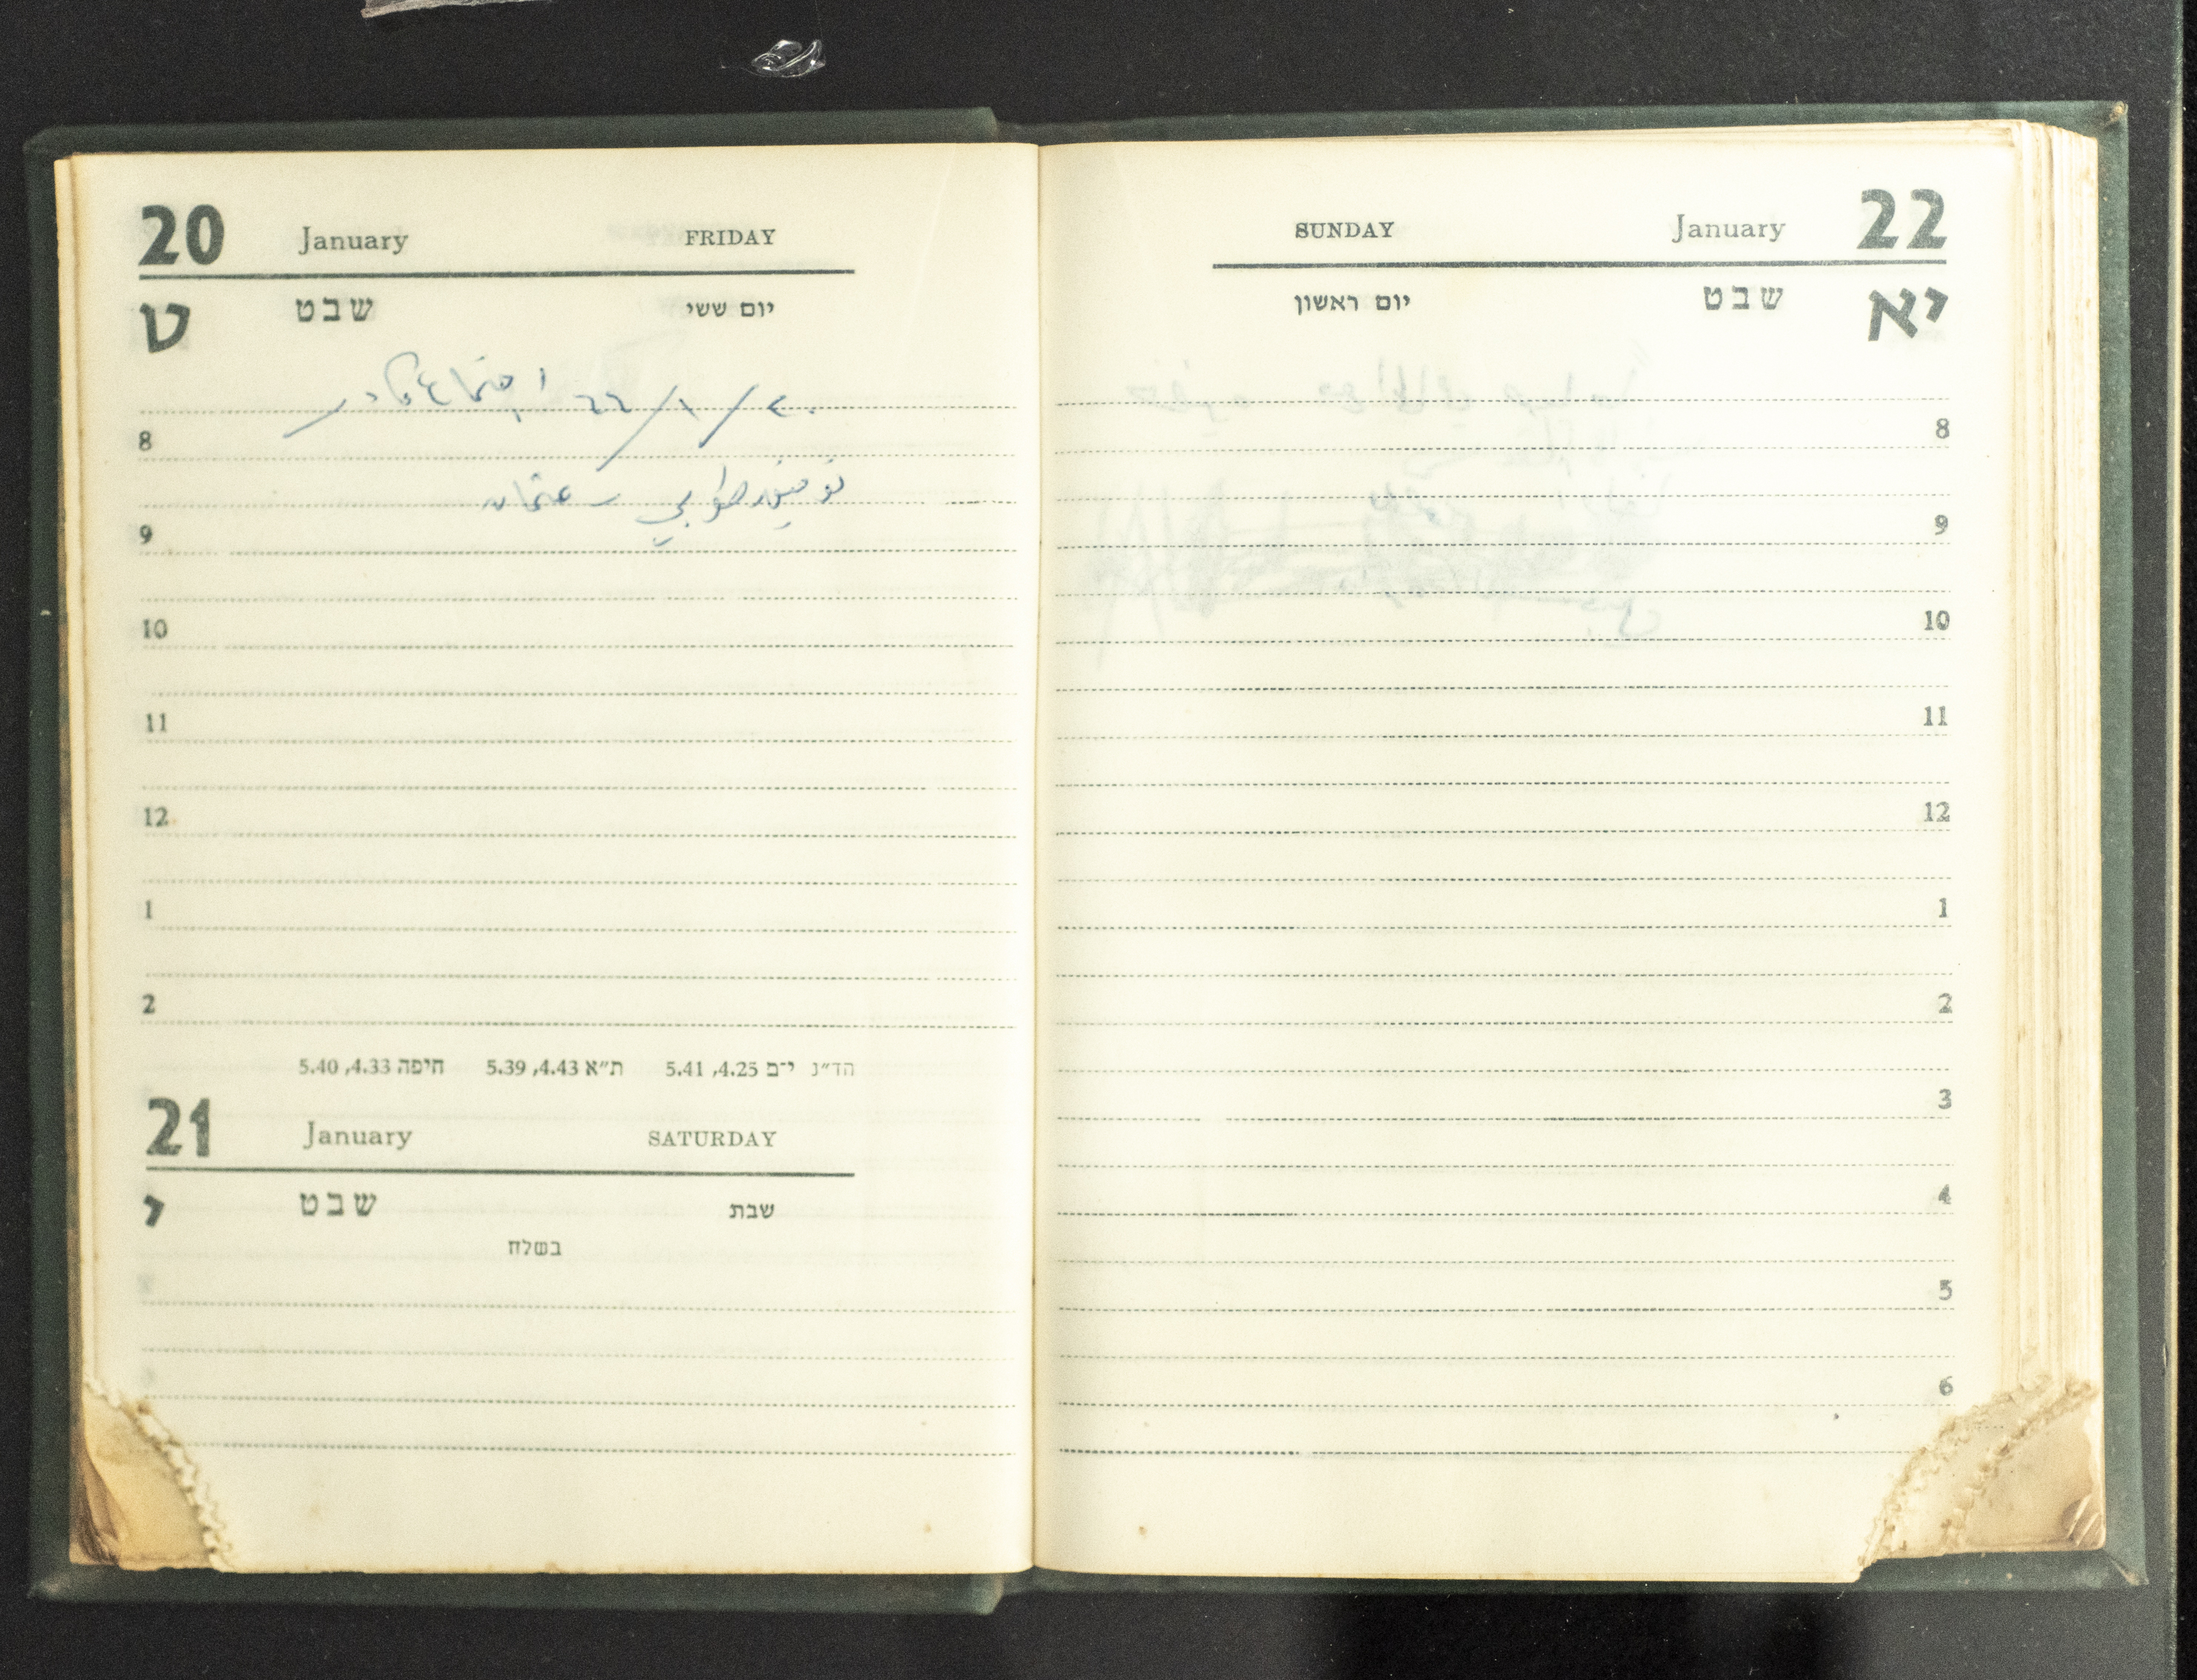 20 January FRIDAY
ט שבט יום ששי
٢٠/١/٦٦ اجتماع كادر
توفيق طوبي - عثمان
8
9
10
11
12
1
2
הד״נ י־ם 4.25, 5.41 ת״א 4.43, 5.39 חיפה 4.33, 5.40
21 January SATURDAY
י שבט שבת
בשלח
SUNDAY January 22
יום ראשון שבט יא
8
9
10
11
12
1
2
3
4
5
6